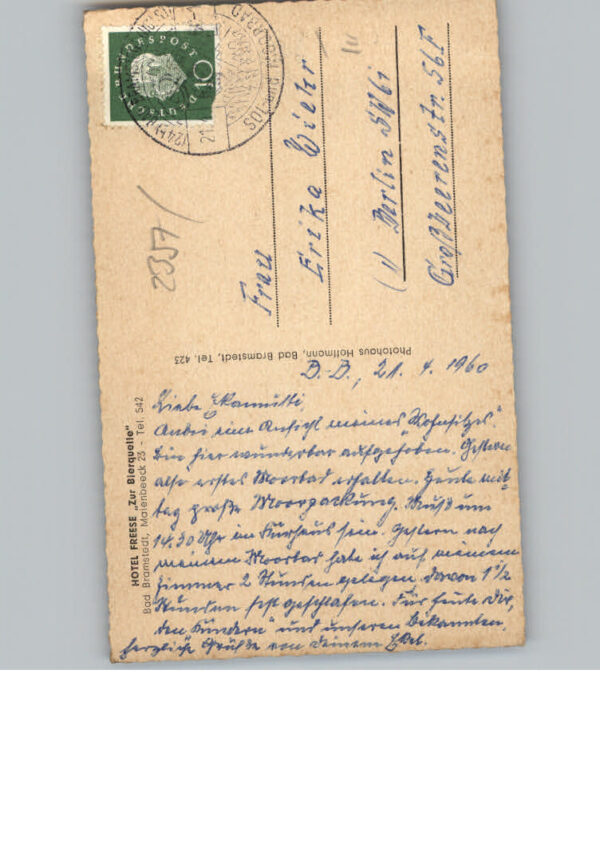 HOTEL FREESE „Zur Bierquelle"
Bad Bramstedt, Maienbeeck 23 - Tel. 542
B.-B., 21. 4. 1960
Liebe Ekamutti,
Anbei eine Ansicht meines „Wohnsitzes."
Bin hier wunderbar aufgehoben. Gestern
also erstes Moorbad erhalten. Heute mit-
tag große Moorpackung. Muß um
14.30 Uhr im Kurhaus sein. Gestern nach
meinem Moorbad habe ich auf meinem
Zimmer 2 Stunden gelegen, davon 1 1/2
Stunden fest geschlafen. Für heute Dir,
den „Kindern" und unseren Bekannten,
herzliche Grüße von Deinem
Photohaus Hoffmann, Bad Bramstedt, Tel. 423
DEUTSCHE BUNDESPOST
10
2357/
Frau
Erika Wiehr
(1) Berlin SW61
Großbeerenstr. 56F